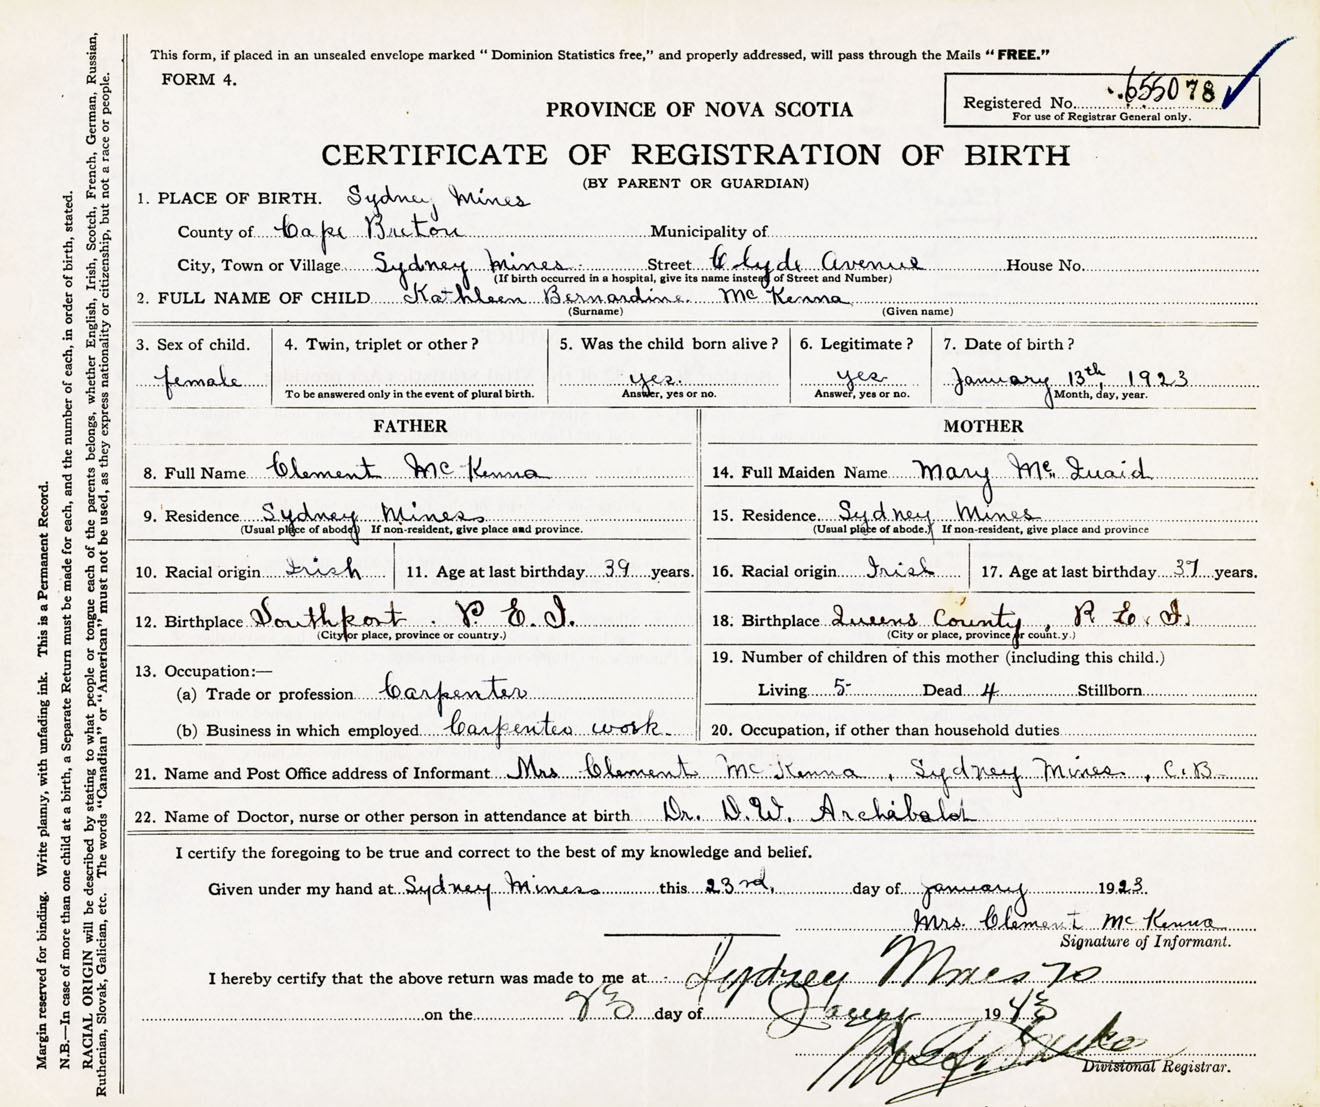 This form, if placed in an unsealed envelope marked "Dominion Statistics free," and properly addressed, will pass through the Mails "FREE."
FORM 4.
Registered No. 655078
For use of Registrar General only.
PROVINCE OF NOVA SCOTIA
CERTIFICATE OF REGISTRATION OF BIRTH
(BY PARENT OR GUARDIAN)
1. PLACE OF BIRTH. Sydney Mines
County of Cape Breton Municipality of
City, Town or Village Sydney Mines Street Clyde Avenue House No.
(If birth occurred in a hospital, give its name instead of Street and Number)
2. FULL NAME OF CHILD Kathleen Bernardine McKenna
(Surname) (Given name)
3. Sex of child. 4. Twin, triplet or other? 5. Was the child born alive? 6. Legitimate? 7. Date of birth?
female yes. yes January 13th, 1923
To be answered only in the event of plural birth. Answer, yes or no. Answer, yes or no. Month, day, year.
FATHER MOTHER
8. Full Name Clement McKenna 14. Full Maiden Name Mary McQuaid
9. Residence Sydney Mines 15. Residence Sydney Mines
(Usual place of abode) If non-resident, give place and province. (Usual place of abode.) If non-resident, give place and province
10. Racial origin Irish 11. Age at last birthday 39 years. 16. Racial origin Irish 17. Age at last birthday 37 years.
12. Birthplace Southport. P. E. I. 18. Birthplace Queens County, P. E. I.
(City or place, province or country.) (City or place, province or count.y.)
13. Occupation:— 19. Number of children of this mother (including this child.)
(a) Trade or profession Carpenter Living 5 Dead 4 Stillborn
(b) Business in which employed Carpenter work. 20. Occupation, if other than household duties
21. Name and Post Office address of Informant Mrs Clement McKenna, Sydney Mines, C.B.
22. Name of Doctor, nurse or other person in attendance at birth Dr. D. W. Archibald
I certify the foregoing to be true and correct to the best of my knowledge and belief.
Given under my hand at Sydney Mines this 23rd. day of January 1923.
Mrs. Clement McKenna
Signature of Informant.
I hereby certify that the above return was made to me at Sydney Mines
on the 23 day of 19
Divisional Registrar.
Margin reserved for binding. Write plainly, with unfading ink. This is a Permanent Record.
N.B.—In case of more than one child at a birth, a Separate Return must be made for each, and the number of each, in order of birth, stated.
RACIAL ORIGIN will be described by stating to what people or tongue each of the parents belongs, whether English, Irish, Scotch, French, German, Russian,
Ruthenian, Slovak, Galician, etc. The words "Canadian" or "American" must not be used, as they express nationality or citizenship, but not a race or people.